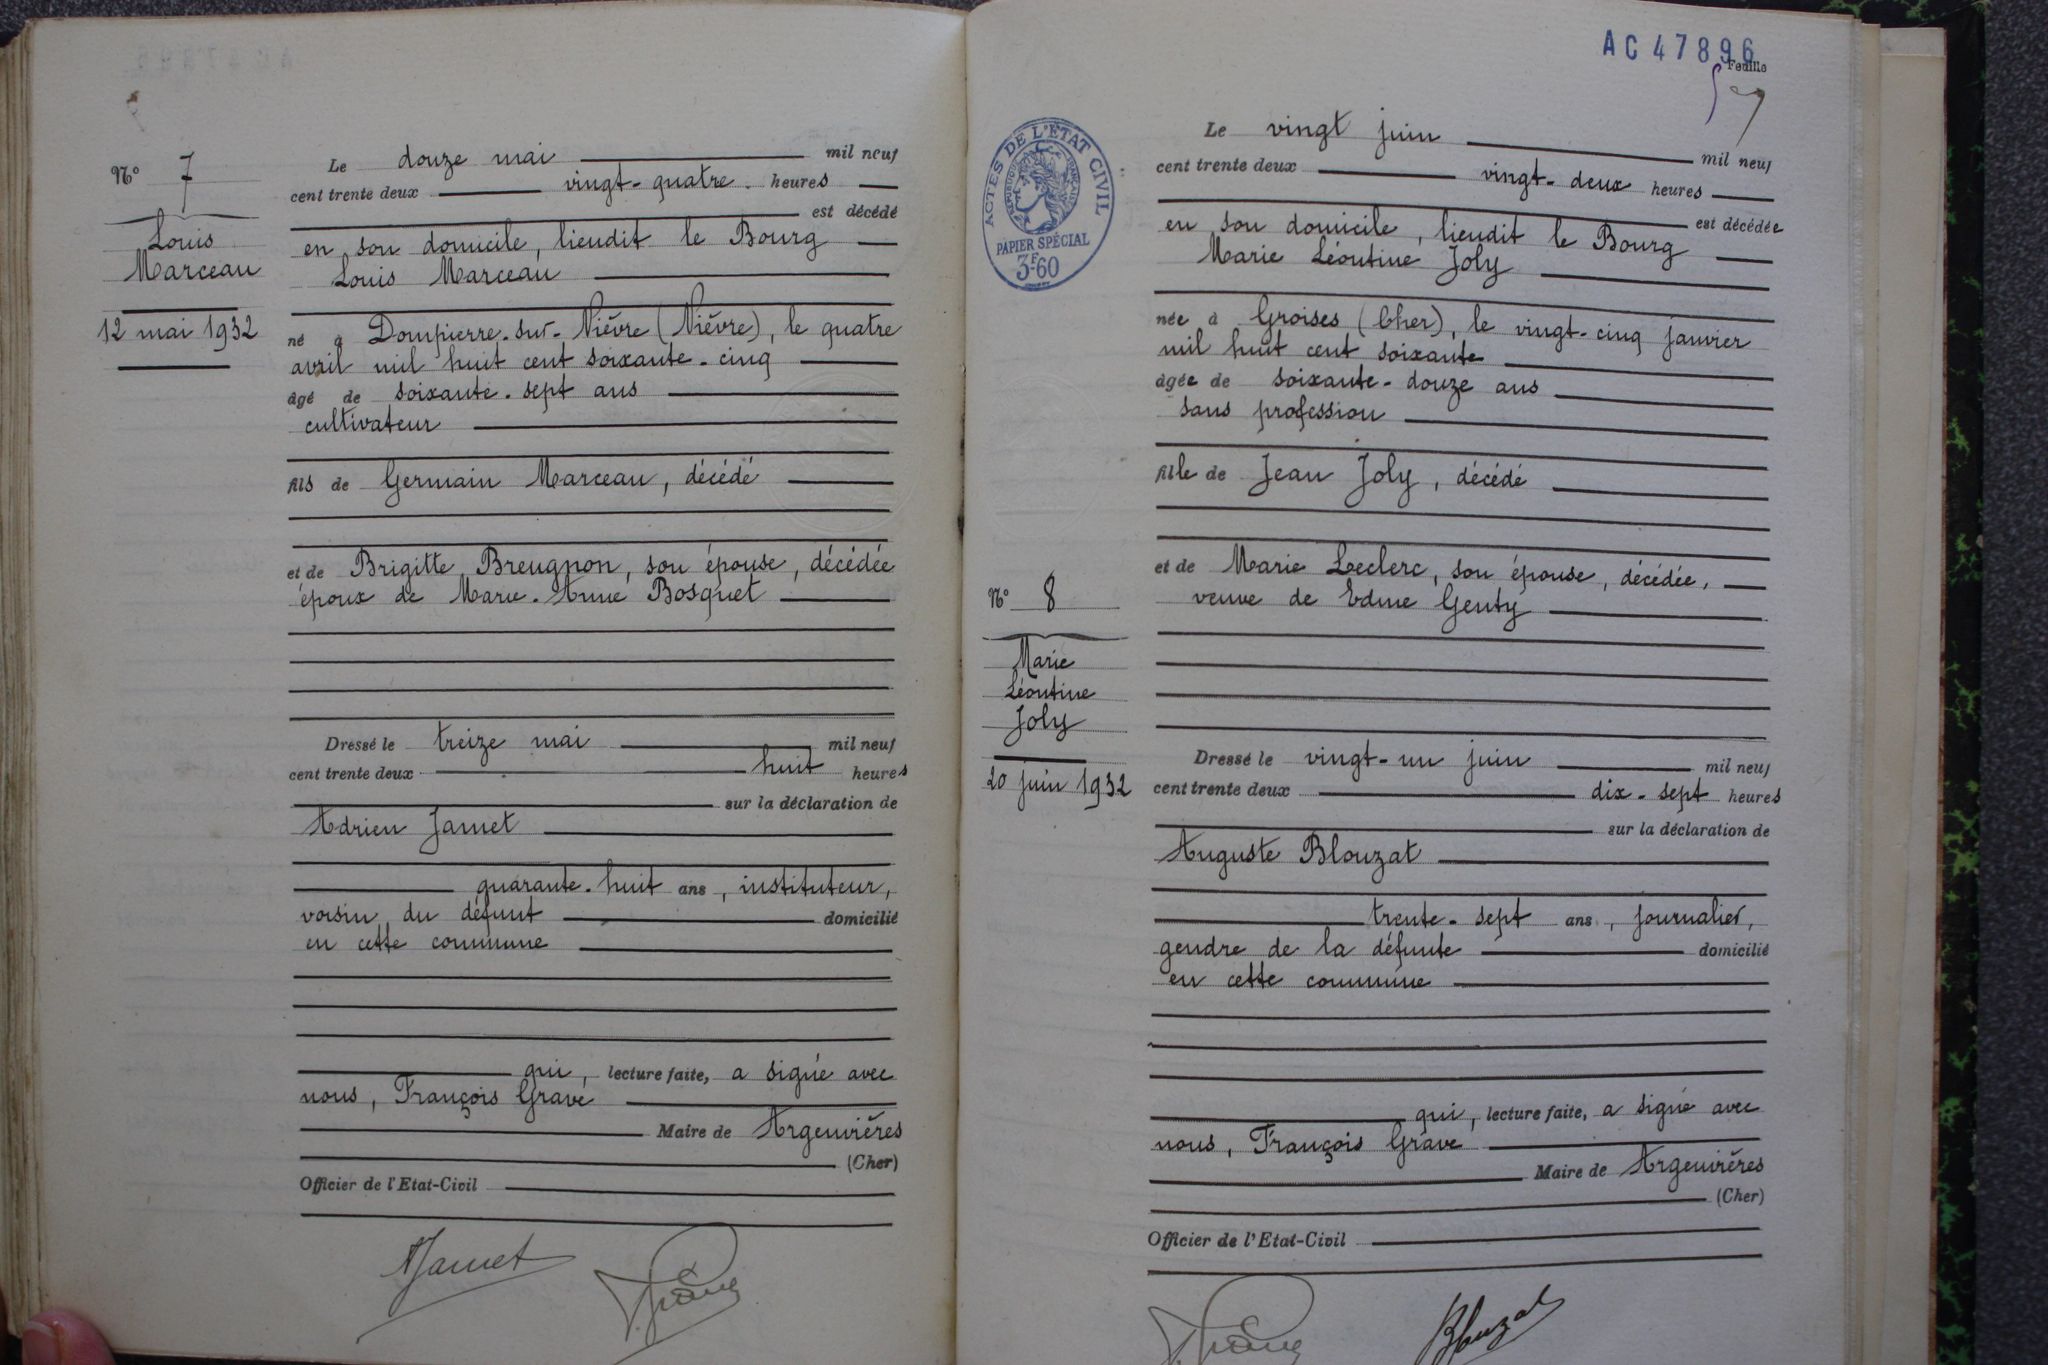 N° 7
Louis
Marceau
12 mai 1932
Le douze mai mil neuf
cent trente deux vingt-quatre heures
est décédé
en son domicile, lieudit le Bourg
Louis Marceau
né à Dompierre-sur-Nièvre (Nièvre), le quatre
avril mil huit cent soixante-cinq
âgé de soixante-sept ans
cultivateur
fils de Germain Marceau, décédé
et de Brigitte Breugnon, son épouse, décédée
époux de Marie-Anne Bosquet
Dressé le treize mai mil neuf
cent trente deux huit heures
sur la déclaration de
Adrien Jamet
quarante-huit ans, instituteur,
voisin du défunt domicilié
en cette commune
qui, lecture faite, a signé avec
nous, François Grave
Maire de Argenvières
(Cher)
Officier de l'Etat-Civil
AJamet
AC47896
Feuille
ACTES DE L'ÉTAT CIVIL
RÉPUBLIQUE FRANÇAISE
PAPIER SPÉCIAL
3F.60
N° 8
Marie
Léontine
Joly
20 juin 1932
Le vingt juin mil neuf
cent trente deux vingt-deux heures
est décédée
en son domicile, lieudit le Bourg
Marie Léontine Joly
née à Groises (Cher), le vingt-cinq janvier
mil huit cent soixante
âgée de soixante-douze ans
sans profession
fille de Jean Joly, décédé
et de Marie Leclerc, son épouse, décédée,
veuve de Edme Genty
Dressé le vingt-un juin mil neuf
cent trente deux dix-sept heures
sur la déclaration de
Auguste Blouzat
trente-sept ans, journalier,
gendre de la défunte domicilié
en cette commune
qui, lecture faite, a signé avec
nous, François Grave
Maire de Argenvières
(Cher)
Officier de l'Etat-Civil
Blouzat